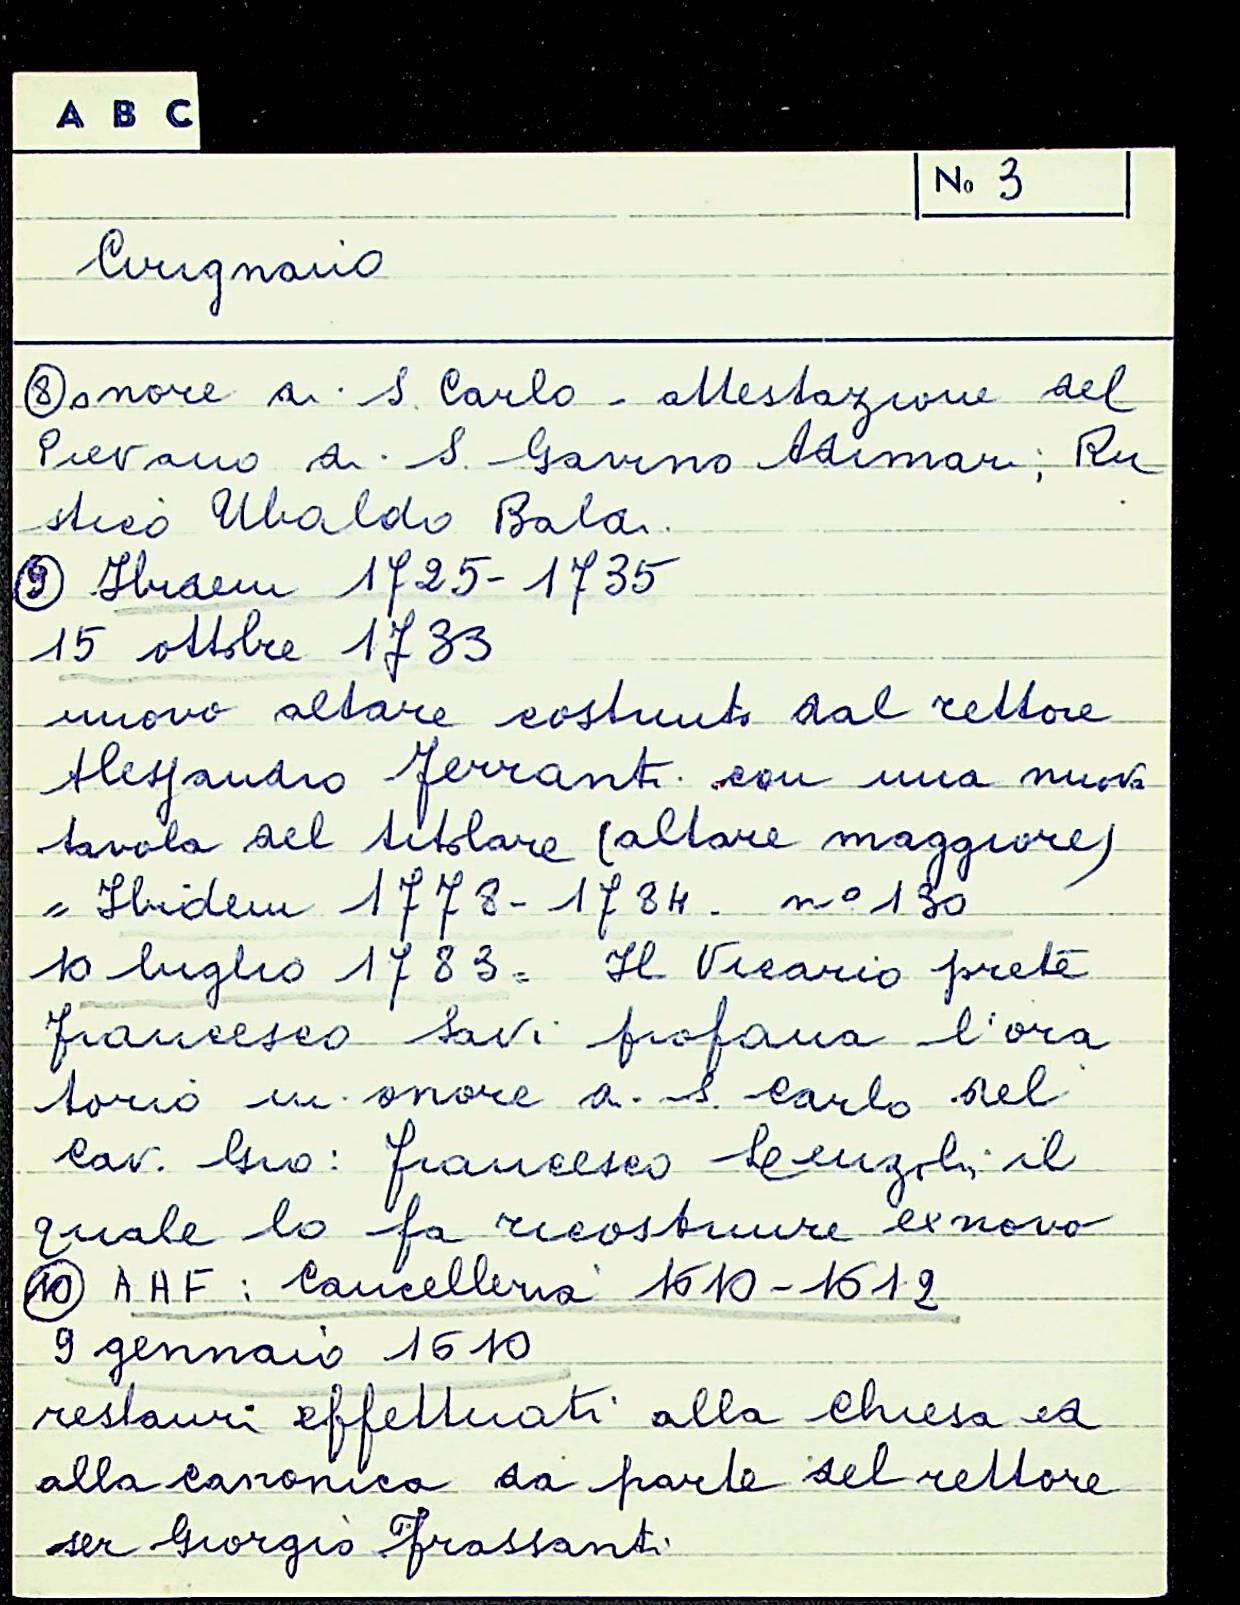 A B C
No 3
Cirignano
⑧ onore di S. Carlo - attestazione del
Pievano di S. Gavino Adimari; Ru
stico Ubaldo Baldi.
⑨ Ibidem 1725-1735
15 ottobre 1733
nuovo altare costruito dal rettore
Alessandro Ferranti con una nuova
tavola del titolare (altare maggiore)
= Ibidem 1778-1784. n° 130
10 luglio 1783. Il Vicario prete
Francesco Savi profana l'ora
torio in onore di S. Carlo del
Cav. Gio: Francesco il
quale lo fa ricostruire exnovo
⑩ AAF: Cancelleria 1610-1612
9 gennaio 1610
restauri effettuati alla chiesa ed
alla canonica da parte del rettore
ser Giorgio Frassanti